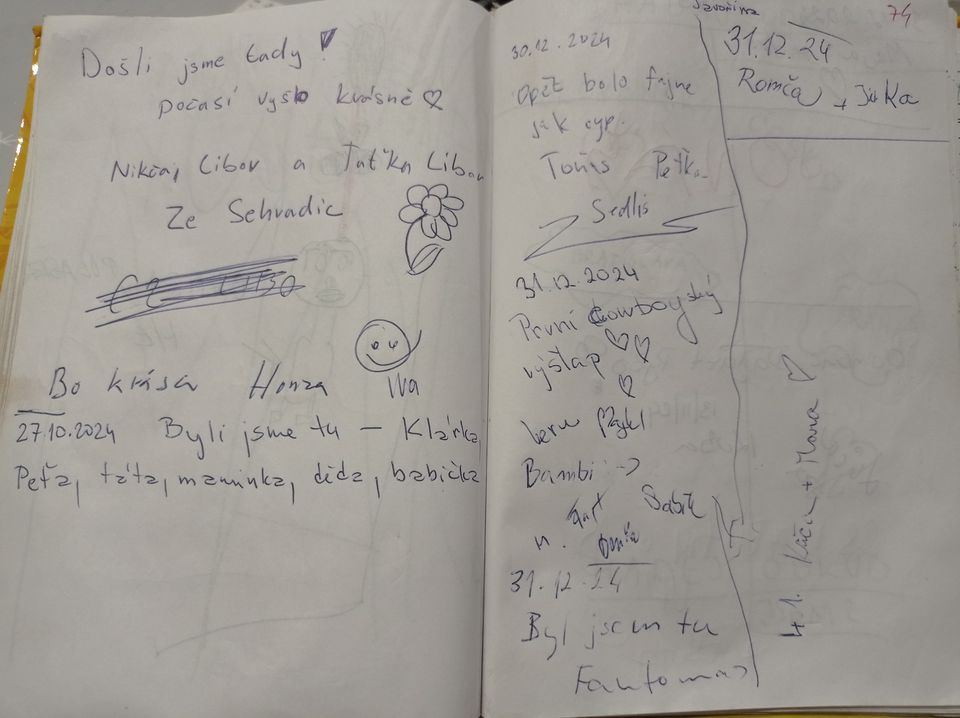 Došli jsme tady!
počasí vyšlo krásně ♡
Nikča, Libor a Taťka Libor
Ze Sehradic
Bo krása Honza Iva
27.10.2024 Byli jsme tu – Klárka,
Peťa, táta, maminka, děda, babička
30.12.2024
opět bolo fajne
jak cyp.
Tomas Peťka
Sedliš
31.12.2024
První Cowboyský
výšlap ♡♡
♡
Bambi
31.12.24
Byl jsem tu
Fantomas
Javořina
74
31.12.24
Romča + Jirka
4.1. Káča + Mára ♡